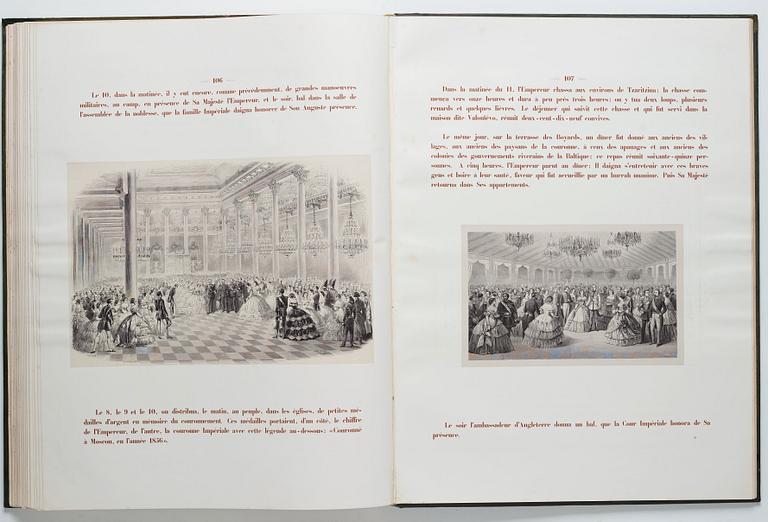 106
Le 10, dans la matinée, il y eut encore, comme précédemment, de grandes manoeuvres
militaires, au camp, en présence de Sa Majesté l'Empereur, et le soir, bal dans la salle de
l'assemblée de la noblesse, que la famille Impériale daigna honorer de Son Auguste présence.
Le 8, le 9 et le 10, on distribua, le matin, au peuple, dans les églises, de petites mé-
dailles d'argent en mémoire du couronnement. Ces médailles portaient, d'un côté, le chiffre
de l'Empereur, de l'autre, la couronne Impériale avec cette légende au-dessous: «Couronné
à Moscou, en l'année 1856».
107
Dans la matinée du 11, l'Empereur chassa aux environs de Tzaritzina; la chasse com-
mença vers onze heures et dura à peu près trois heures; on y tua deux loups, plusieurs
renards et quelques lièvres. Le déjeuner qui suivit cette chasse et qui fut servi dans la
maison dite Valouïévo, réunit deux-cent-dix-neuf convives.
Le même jour, sur la terrasse des Boyards, un dîner fut donné aux anciens des vil-
lages, aux anciens des paysans de la couronne, à ceux des apanages et aux anciens des
colonies des gouvernements riverains de la Baltique; ce repas réunit soixante-quinze per-
sonnes. A cinq heures, l'Empereur parut au dîner: Il daigna s'entretenir avec ces braves
gens et boire à leur santé, faveur qui fut accueillie par un hurrah unanime. Puis Sa Majesté
retourna dans Ses appartements.
Le soir l'ambassadeur d'Angleterre donna un bal, que la Cour Impériale honora de Sa
présence.